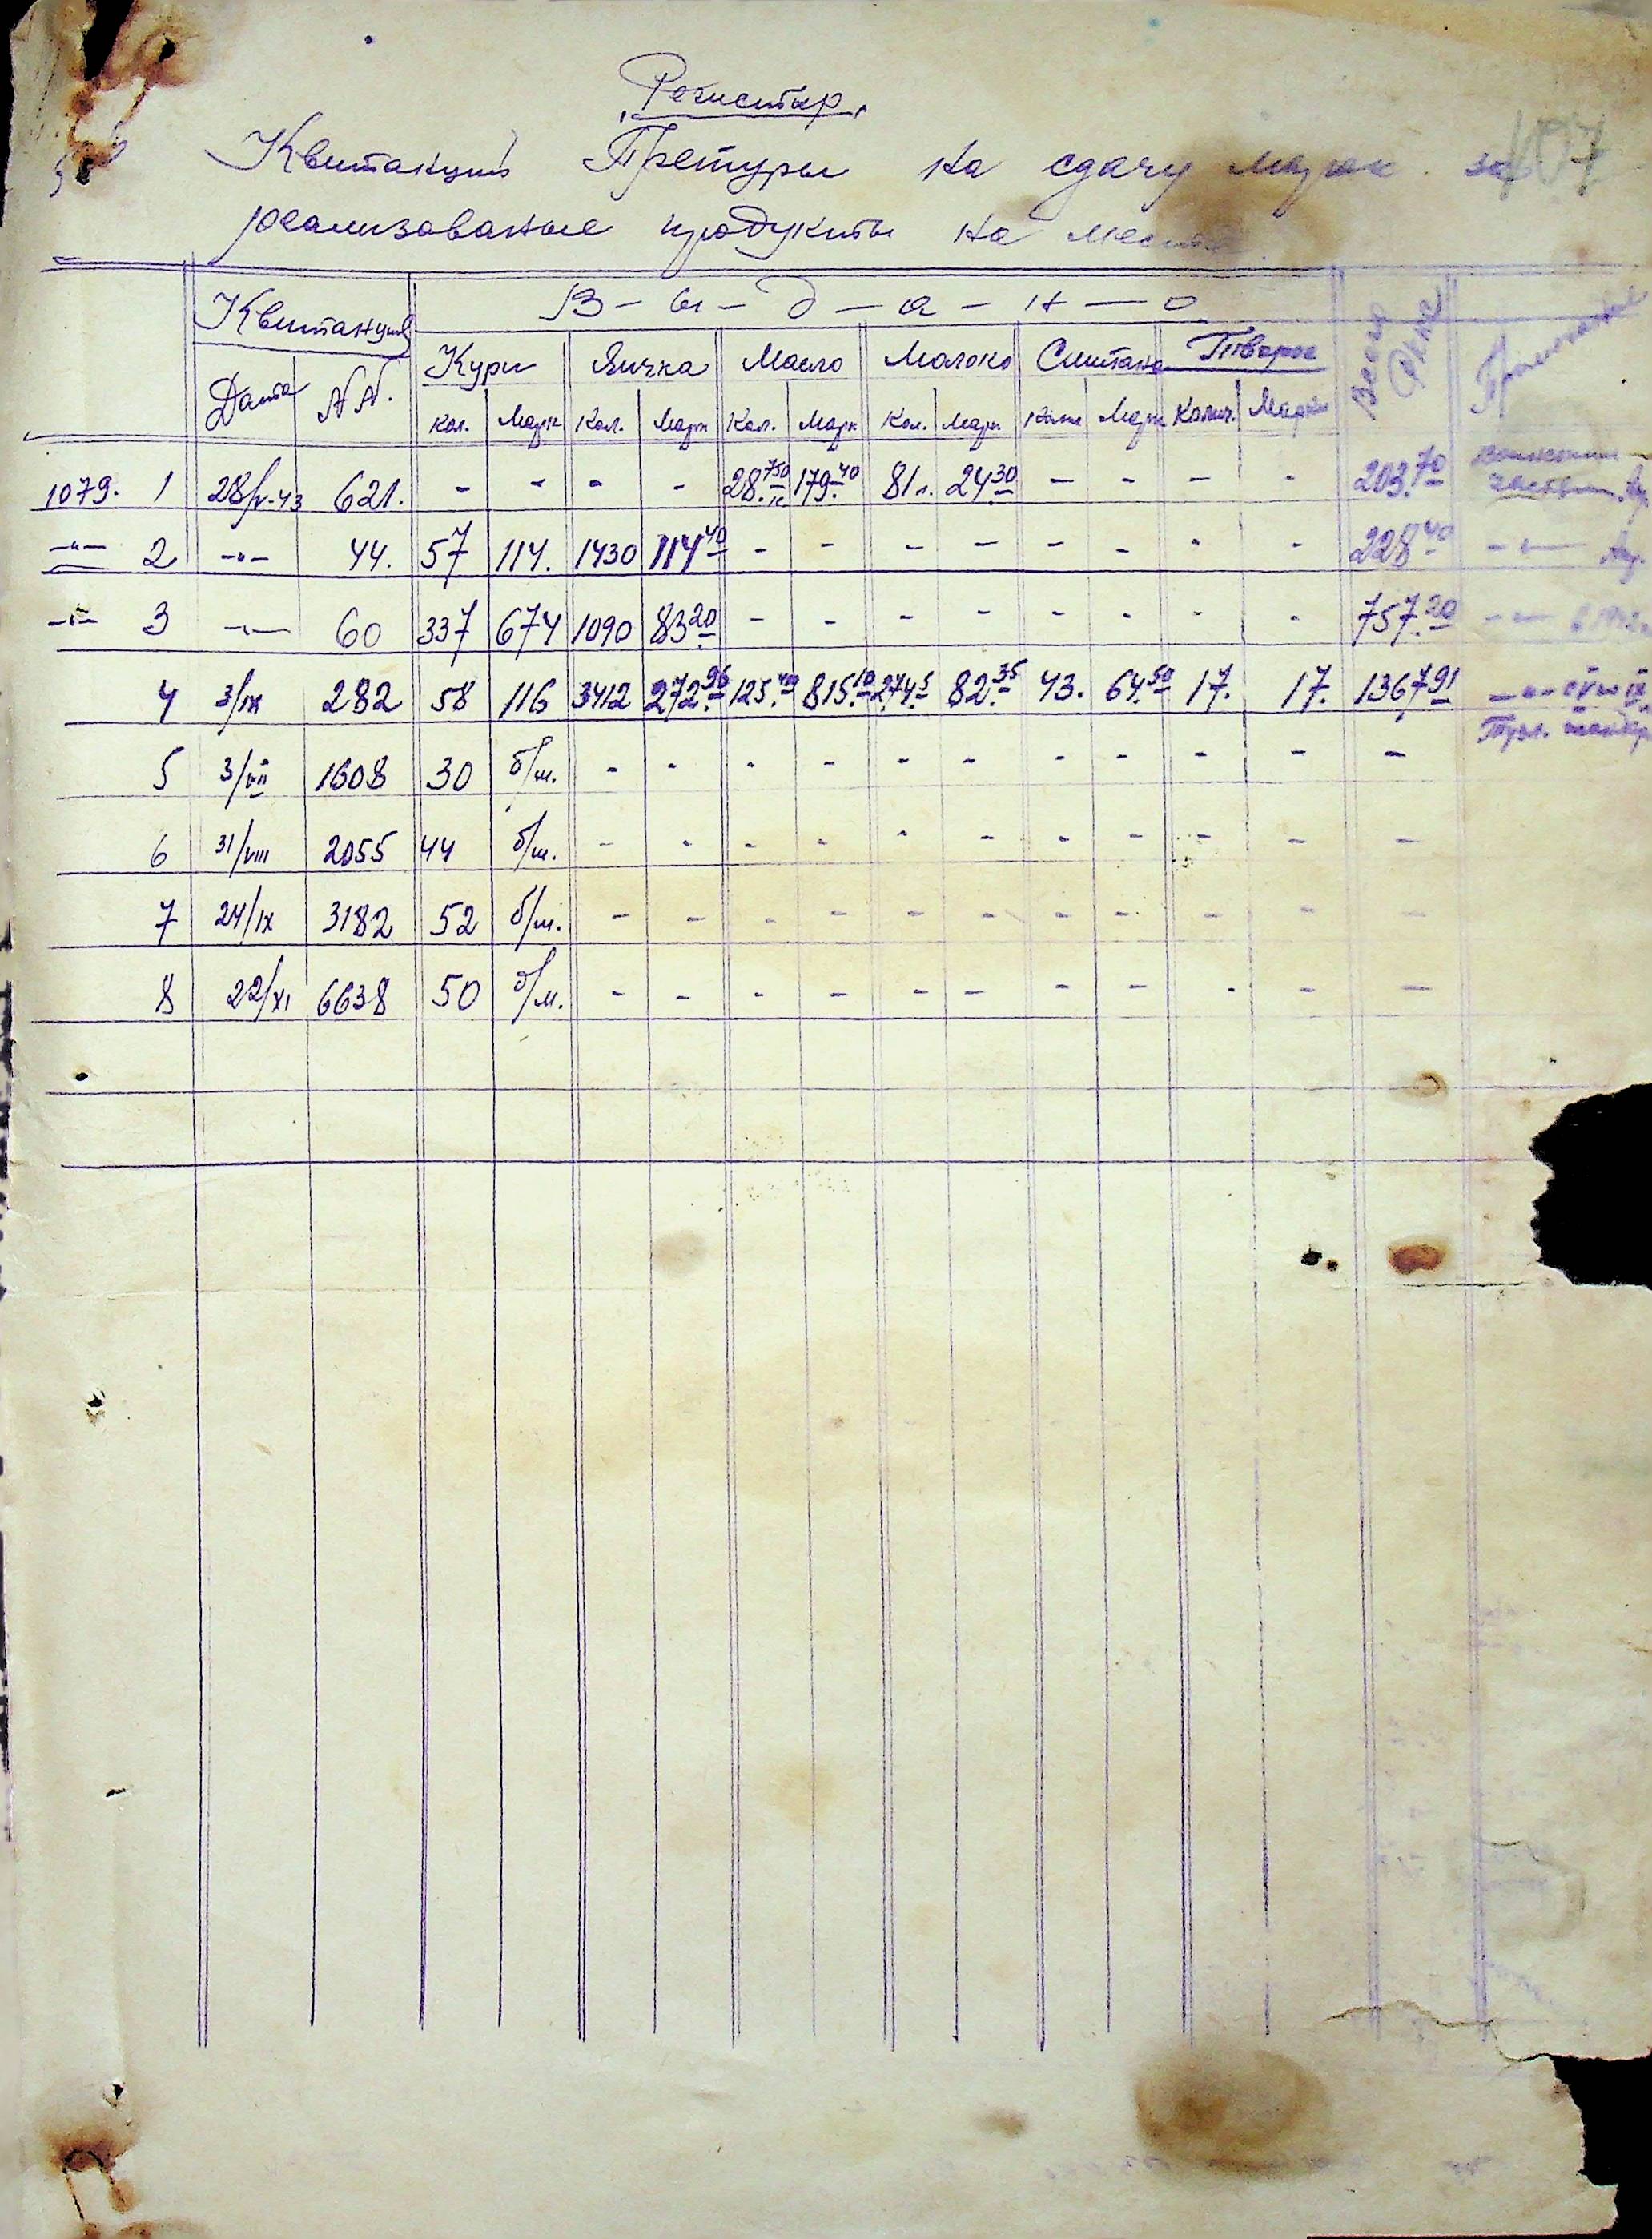 Регистър
107
Квитанций Претуры на сдачу марок за
реализованые продукты на месте
Квитанций В - ы - д - а - н - о Всего РККС Примечание
Дата №№. Куры Яичка Масло Молоко Смитана Творог
кол. Марк Кол. Марк Кол. Марк Кол. Марк Колич Марк Колич. Марки
1079. 1 28/V-43 621. - - - - 28.750 к. 179.40 81 л. 24.30 - - - - 203.70
-"- 2 -"- 44. 57 114. 1430 114.40 - - - - - - - - 228.40 -"-
-"- 3 -"- 60 337 674 1090 83.20 - - - - - - - - 757.20 -"-
4 3/IX 282 58 116 3412 272.96 125.400 815.10 274.5 82.35 43. 64.50 17. 17. 1367.91 -"-
5 3/VII 1608 30 б/м. - - - - - - - - - - -
6 31/VIII 2055 44 б/м. - - - - - - - - - - -
7 24/IX 3182 52 б/м. - - - - - - - - - - -
8 22/XI 6638 50 б/м. - - - - - - - - - - -